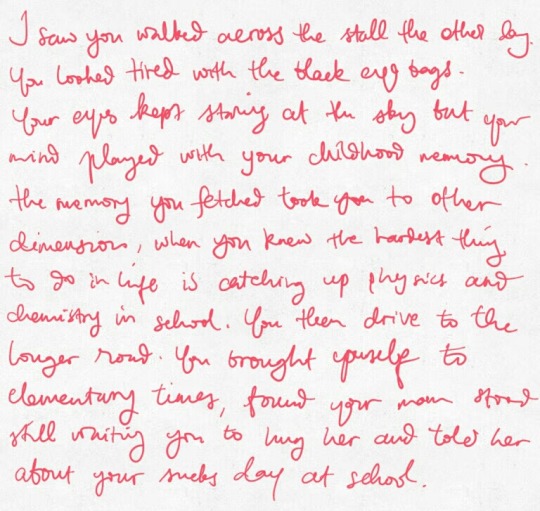 I saw you walked across the stall the other day.
You looked tired with the black eye bags.
Your eyes kept staring at the sky but your
mind played with your childhood memory.
the memory you fetched took you to other
dimension, when you knew the hardest thing
to do in life is catching up physics and
chemistry in school. You then drive to the
longer road. You brought yourself to
elementary times, found your mom stood
still waiting you to hug her and told her
about your sucks day at school.